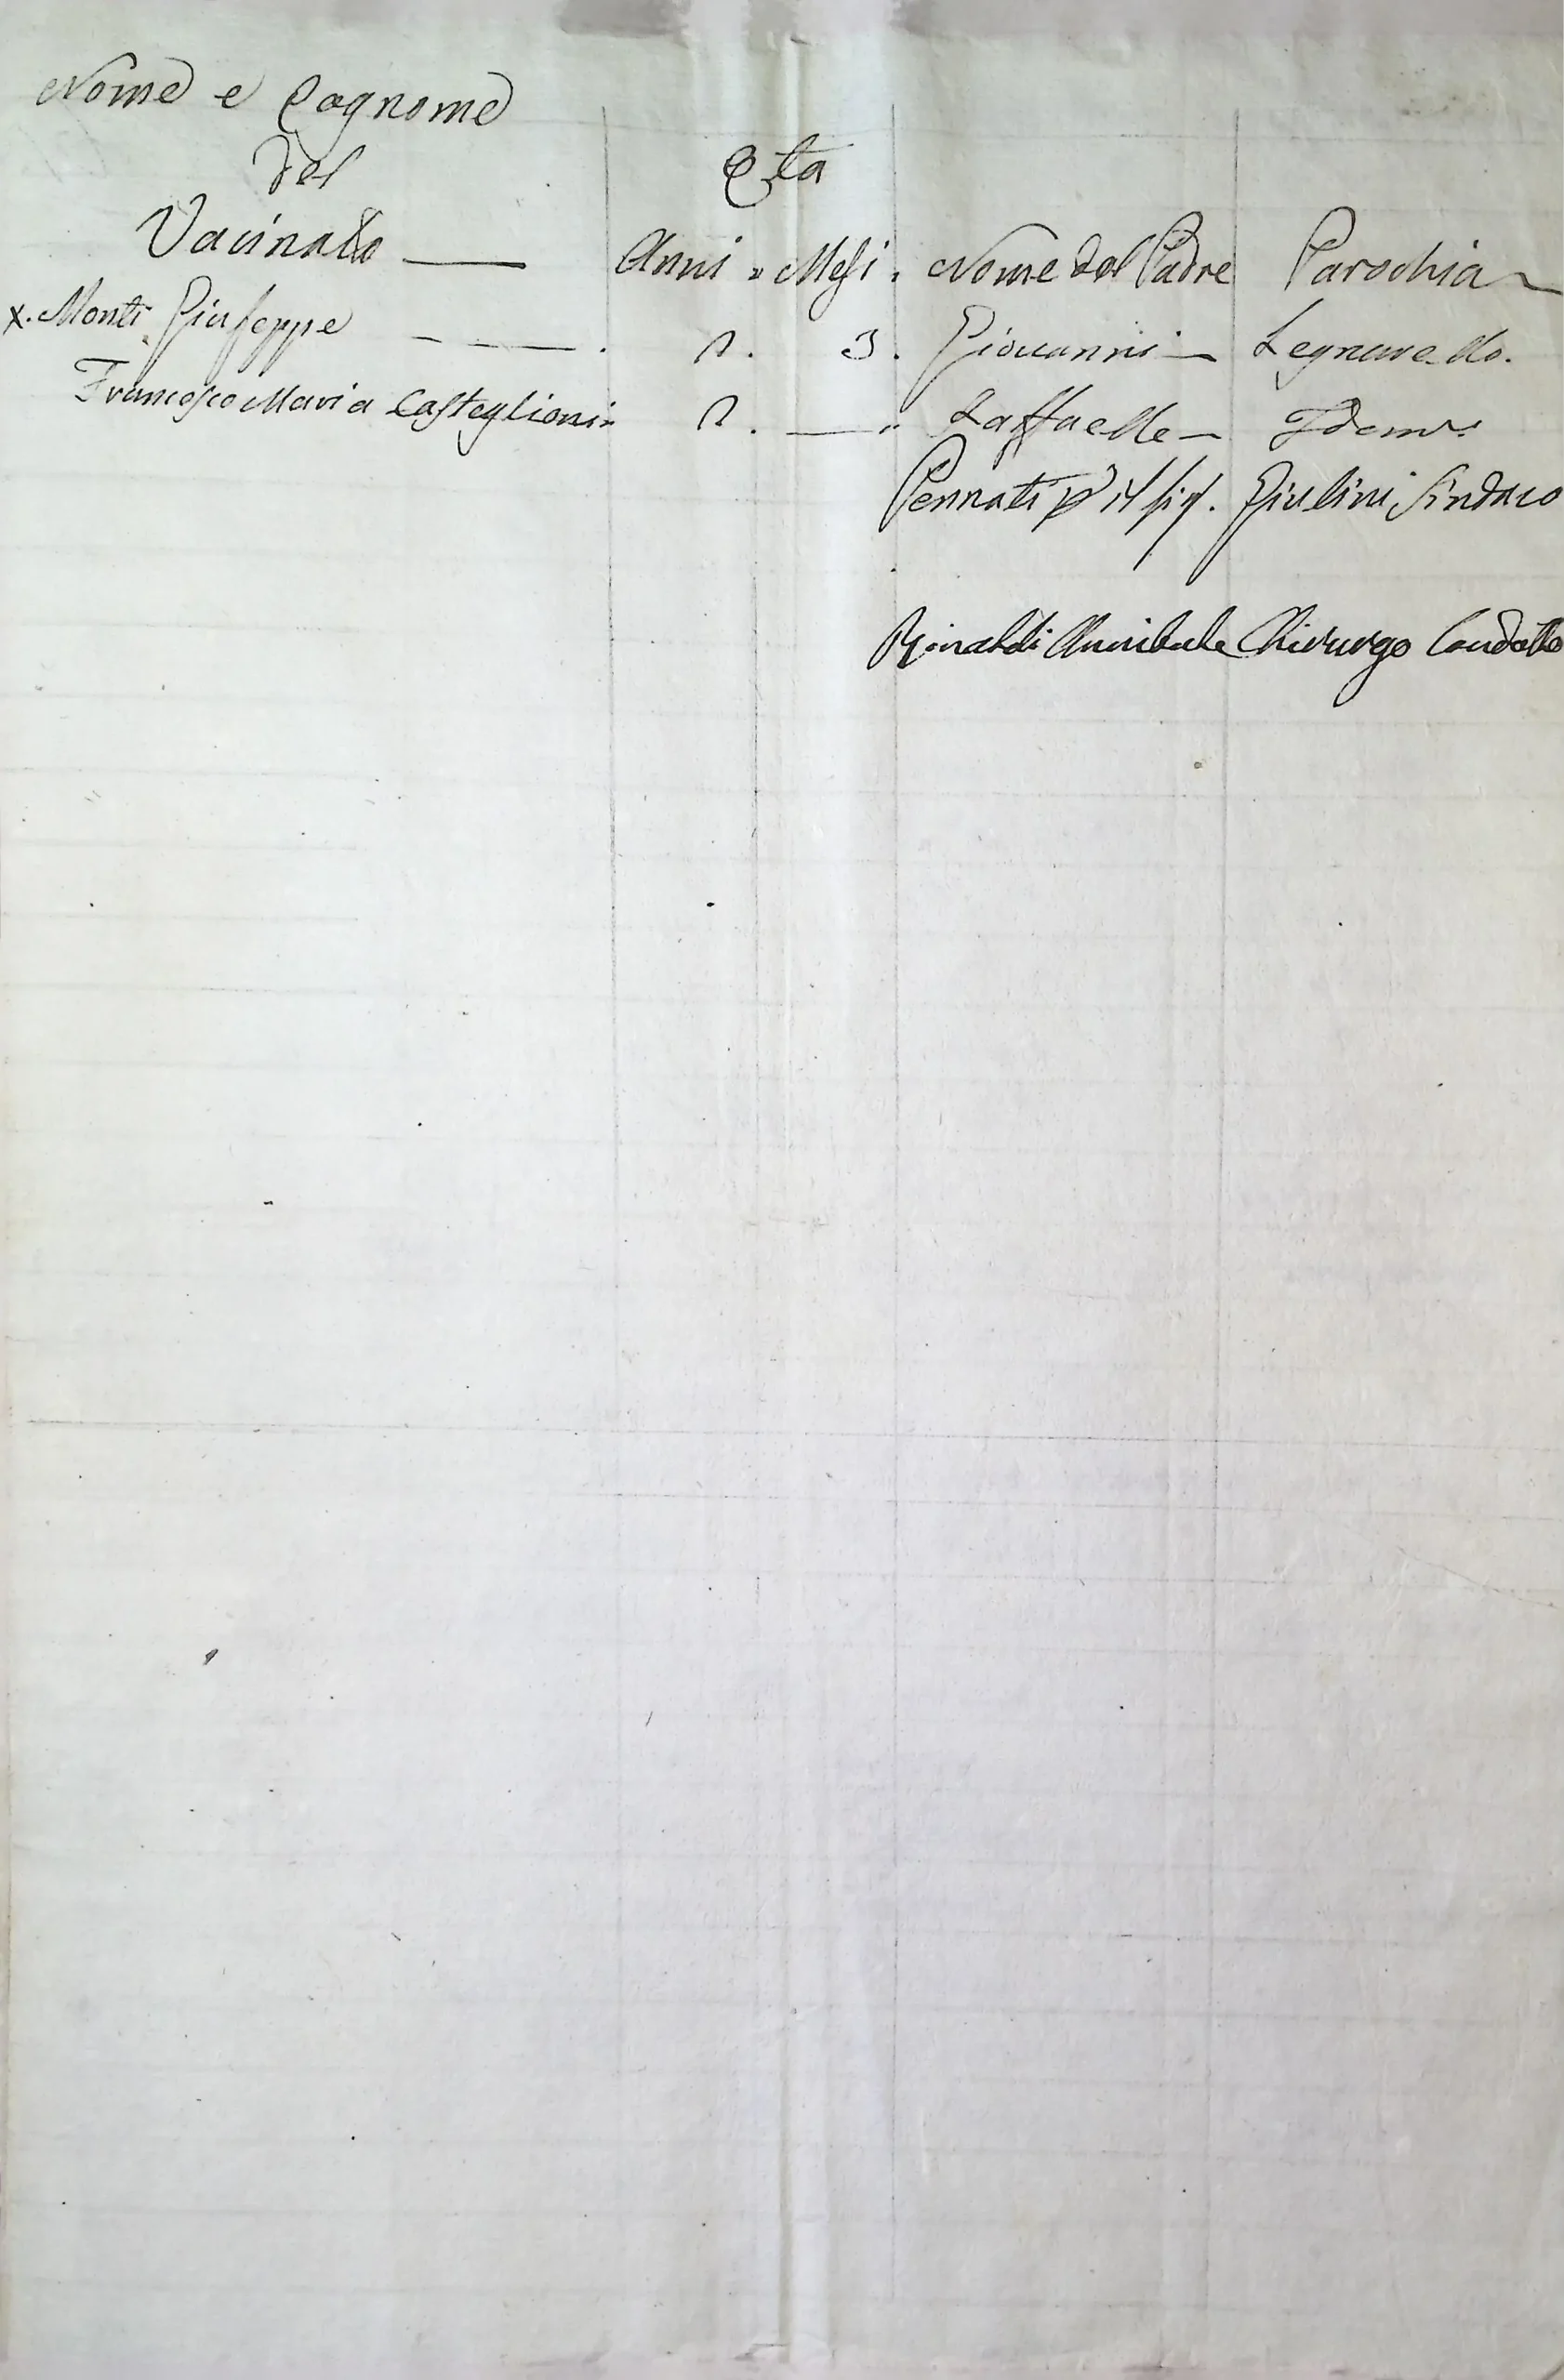 Nome e Cognome
del
Vacinato
Età
Anni " Mesi. Nome del Padre Parochia
x. Monti Giuseppe 3. Giovanni Legnarello.
Francesco Maria Casteglioni Raffaelle Idem
Pennati p il sig. Giulini Sindaco
Rinaldi Annibale Chirurgo Condotto